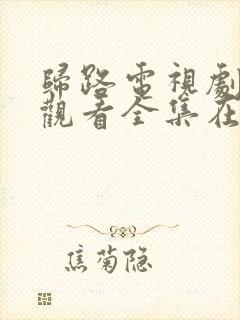 歸路電視劇
觀看全集在
焦菊隐